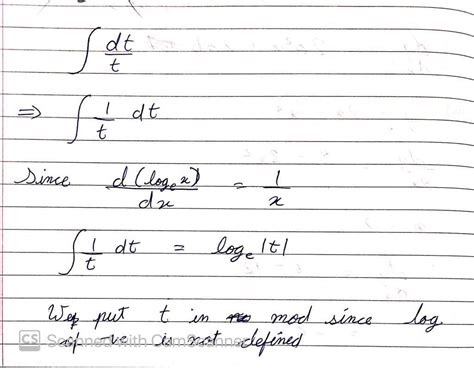 ∫ dt/t
⇒ ∫ 1/t dt
Since d(logₑx)/dx = 1/x
∫ 1/t dt = logₑ|t|
We put t in mod since log
of -ve is not defined
CS Scanned with CamScanner